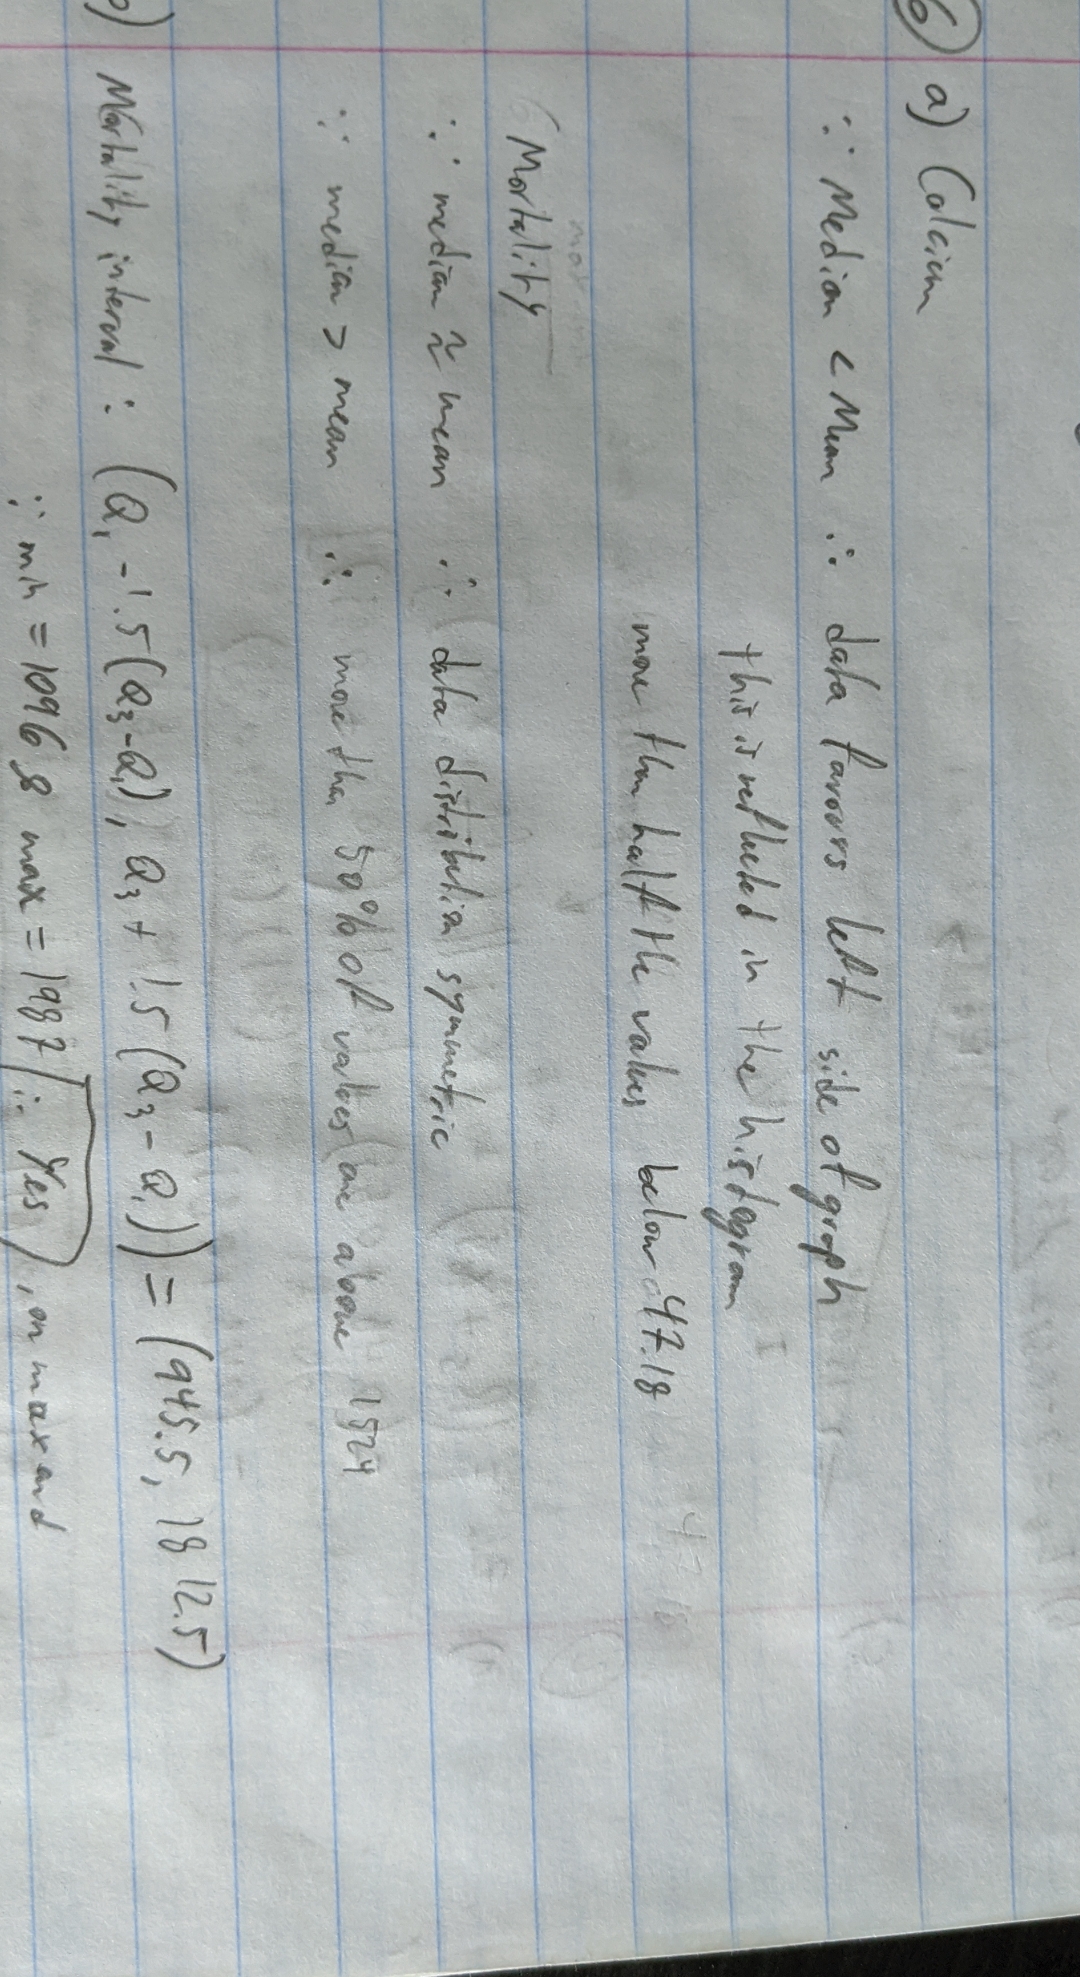 6) a) Calcium
∵ Median < Mean ∴ data favours left side of graph
this is reflected in the histogram
more than half the values below 47.18
Mortality
∵ median ≈ mean ∴ data distribution symmetric
∵ median > mean ∴ more than 50% of values are above 1524
) Mortality interval : (Q₁ - 1.5(Q₃-Q₁), Q₃ + 1.5(Q₃-Q₁)) = (945.5, 1812.5)
∵ min = 1096 & max = 1987 ∴ Yes, on max end